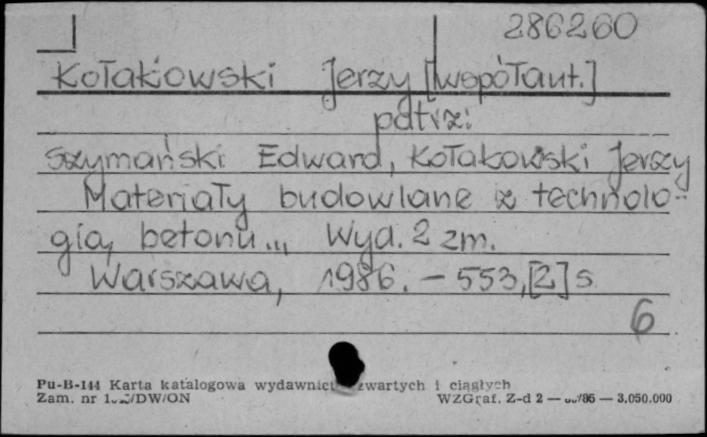 286260
Kołakowski Jerzy [współaut.]
patrz:
Szymański Edward, Kołakowski Jerzy
Materiały budowlane z technolo-
gią betonu..., Wyd. 2 zm.
Warszawa, 1986. - 553,[2] s
6
Pu-B-144 Karta katalogowa wydawnictw zwartych i ciągłych
Zam. nr /DW/ON WZGraf. Z-d 2 — /86 — 3.050.000